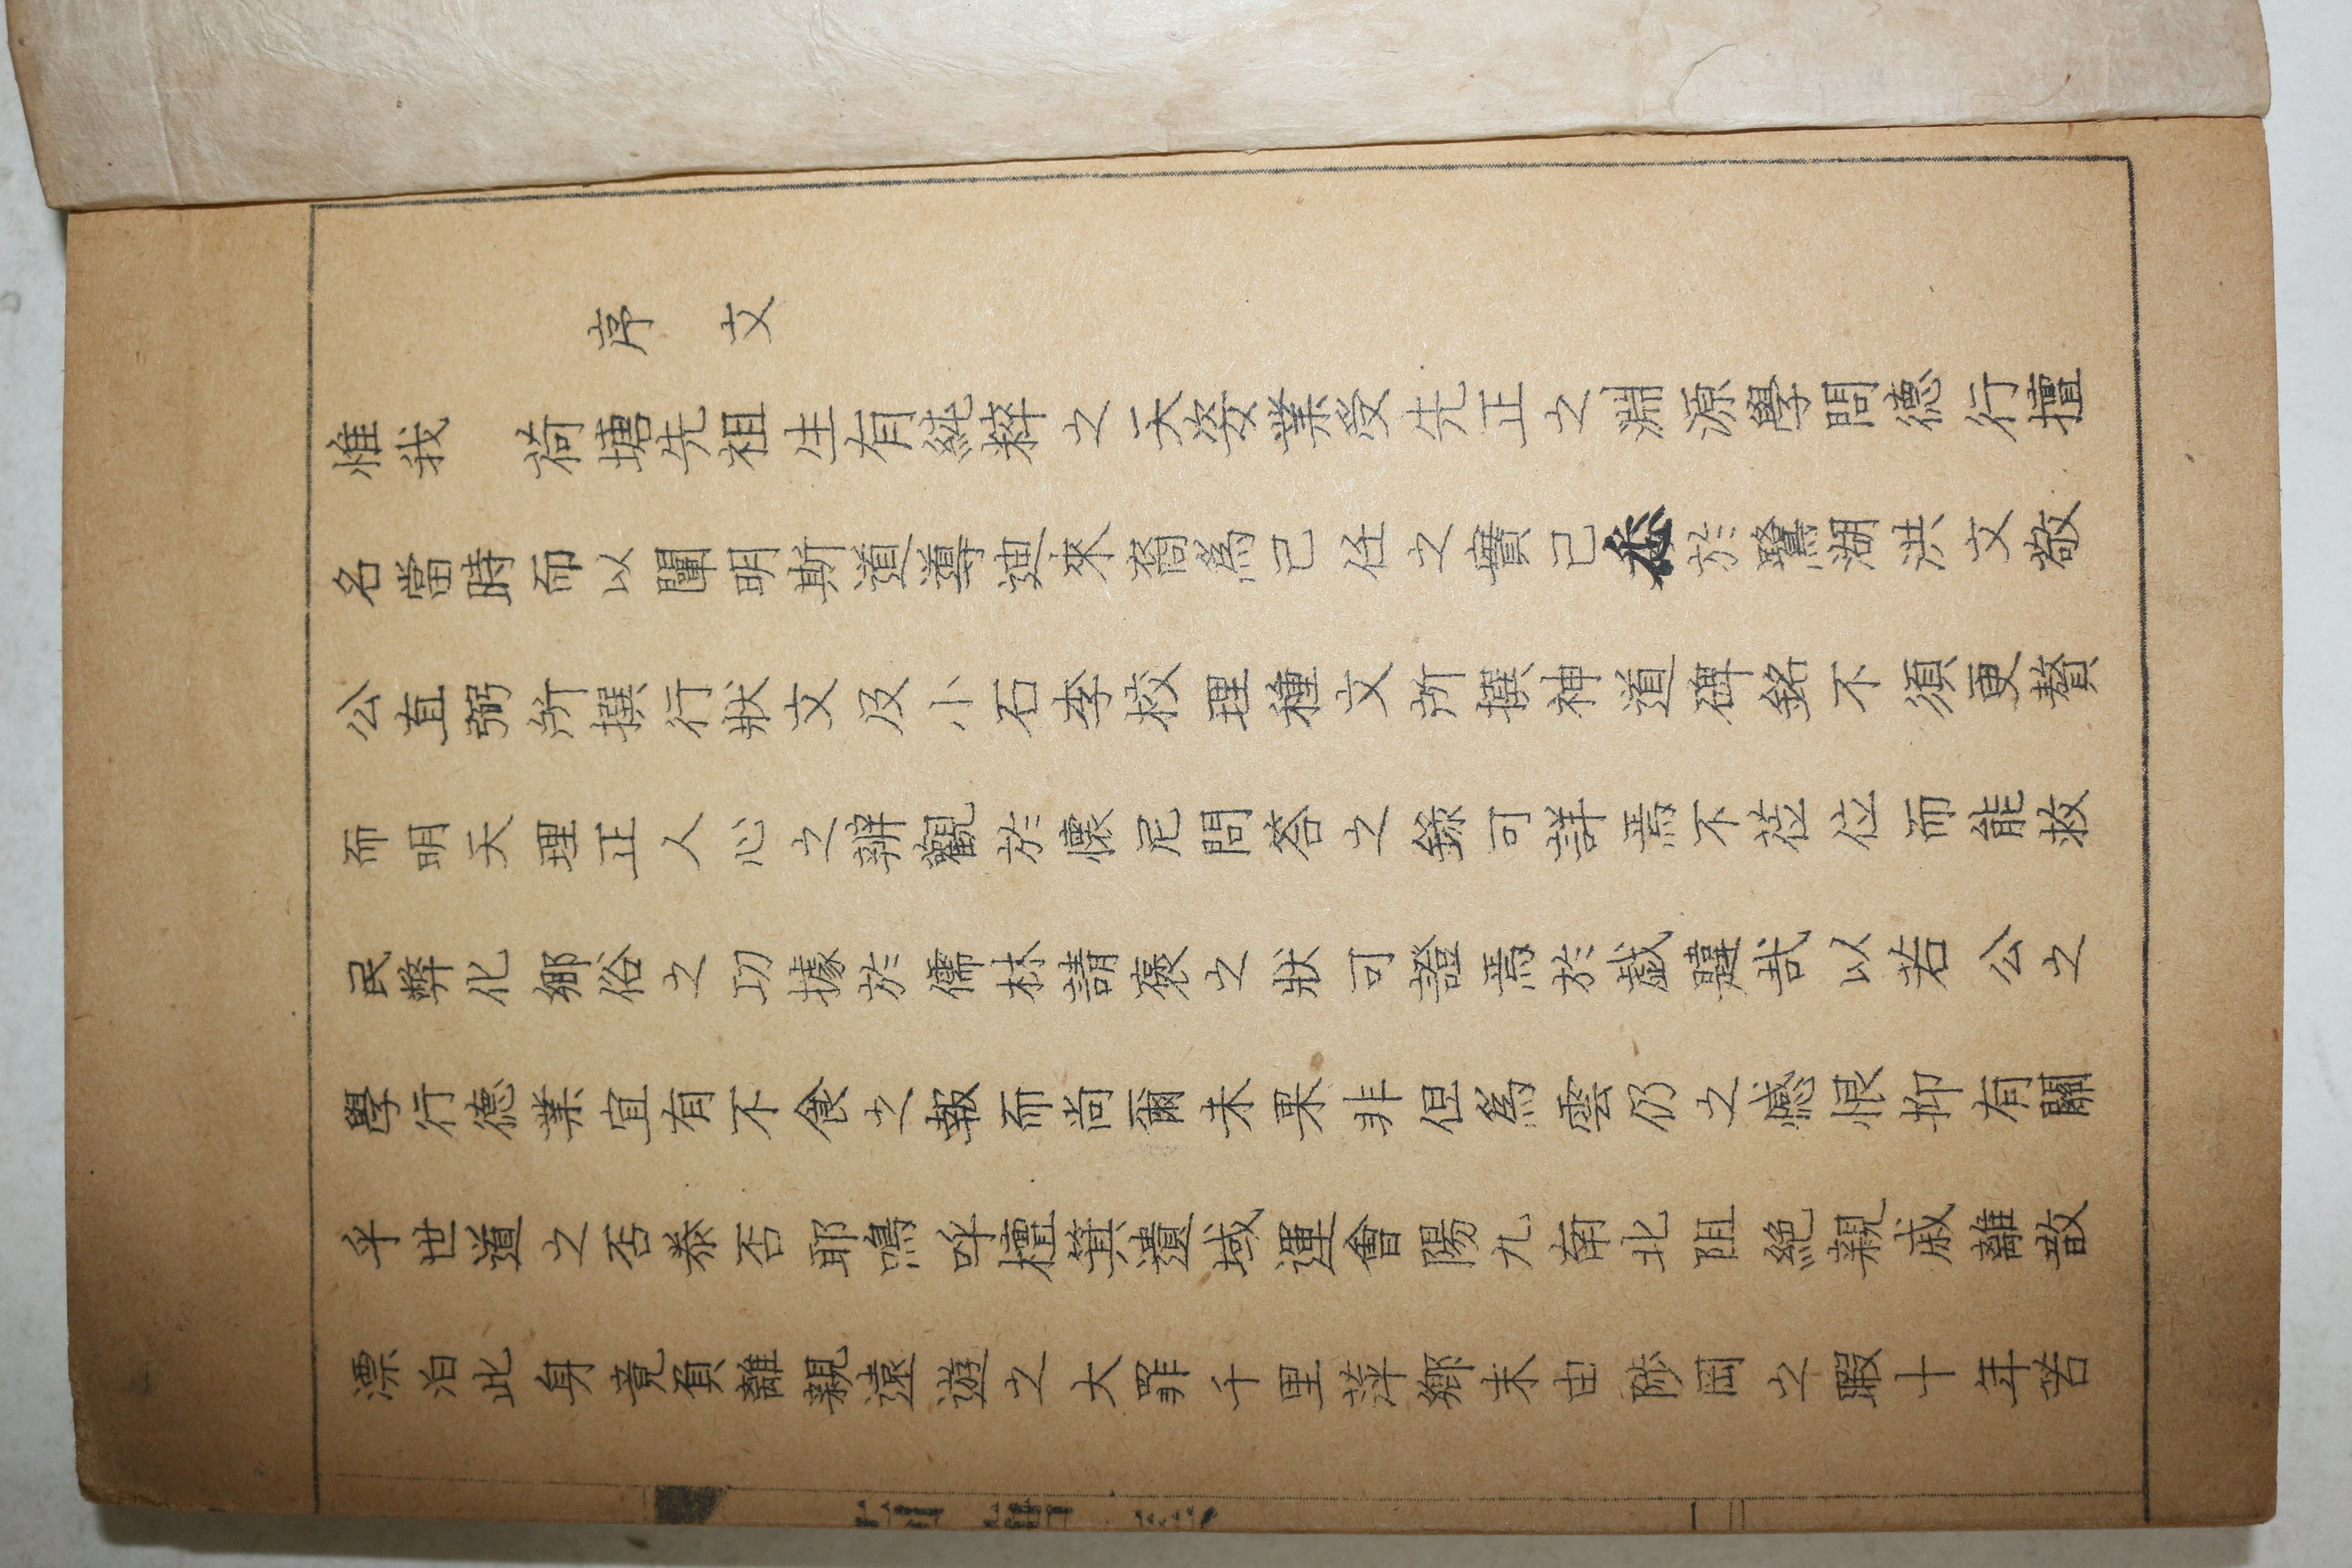 序文
惟我 荷塘先祖生有純粹之天姿業受先正之淵源學問德行擅
名當時而以闡明斯道導迪來裔爲己任之實已悉於鷺湖洪文敬
公直弼所撰行狀文及小石李校理種文所撰神道碑銘不須更贅
而明天理正人心之辨觀於懷尼問答之錄可詳焉不莅位而能救
民弊化鄕俗之功據於儒林請褒之狀可證焉於戱韙哉以若公之
學行德業宜有不食之報而尙爾未果非但爲雲仍之憾恨抑有關
乎世道之否泰否耶嗚呼檀箕遺域運會陽九南北阻絶親戚離散
漂泊此身竟負離親遠遊之大罪千里萍鄕末由陟岡之暇十年苦